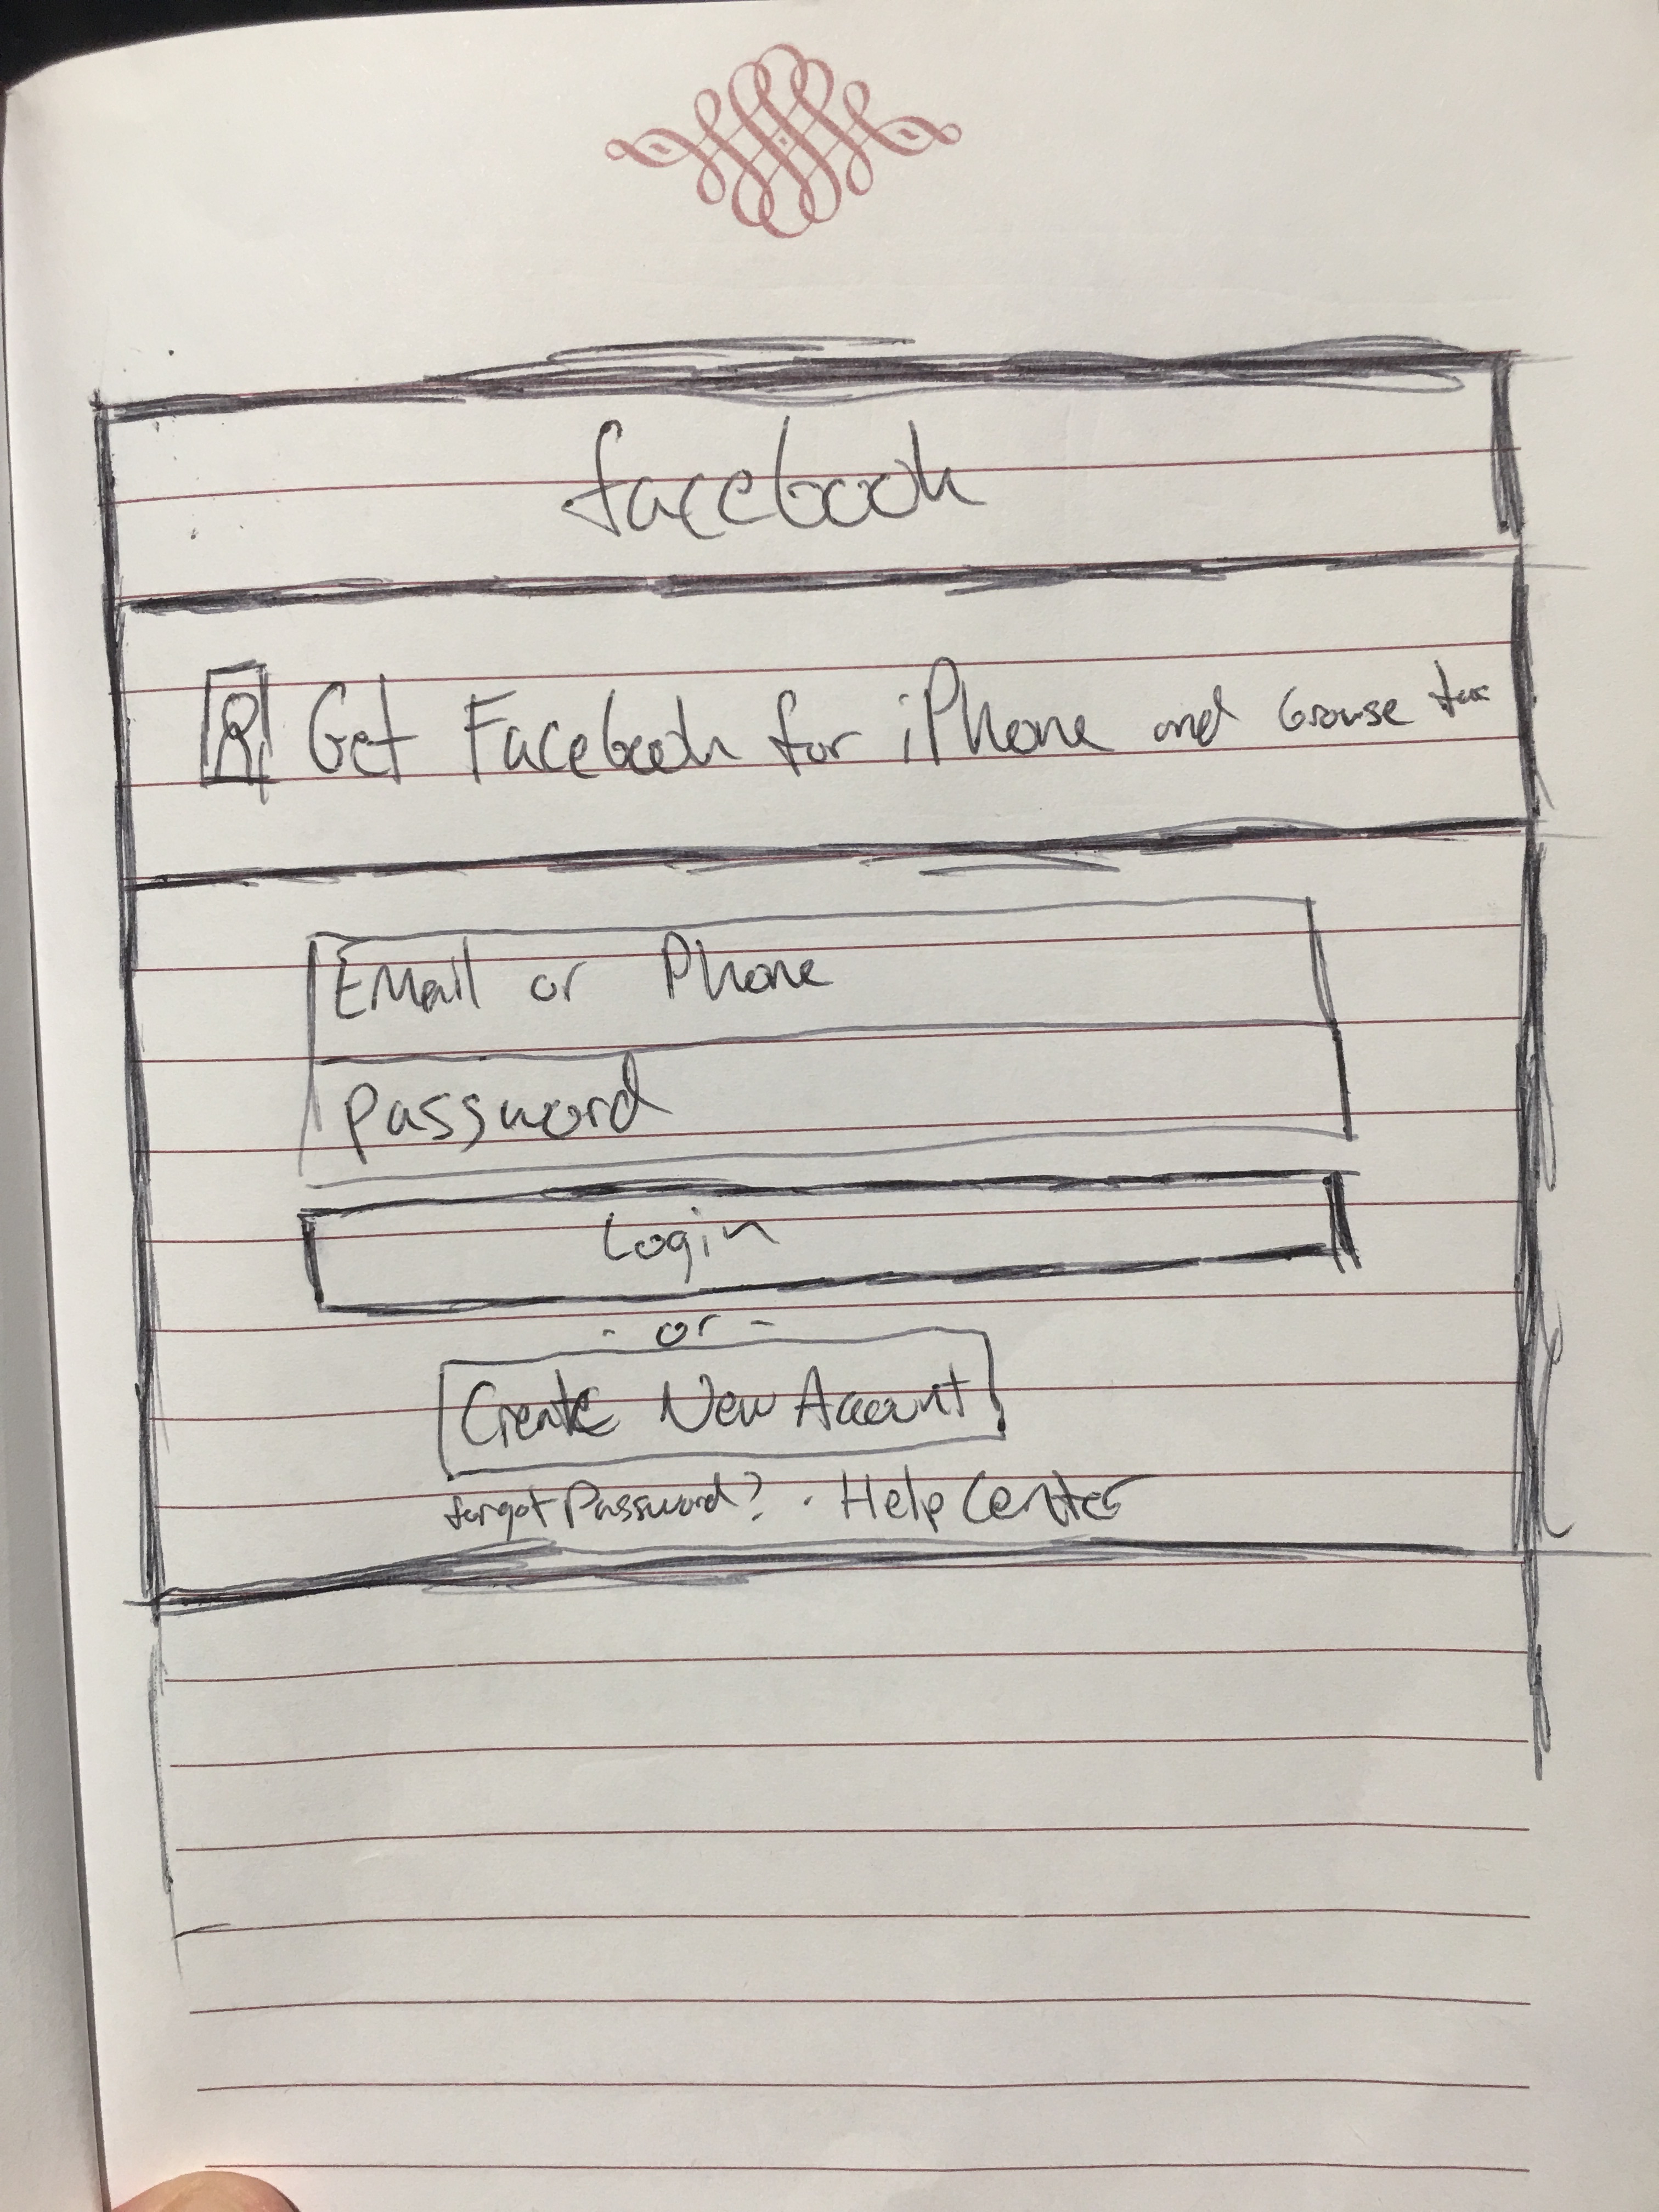 facebook
Get Facebook for iPhone and browse
Email or Phone
Password
Login
- or -
Create New Account
forgot Password? · Help Center